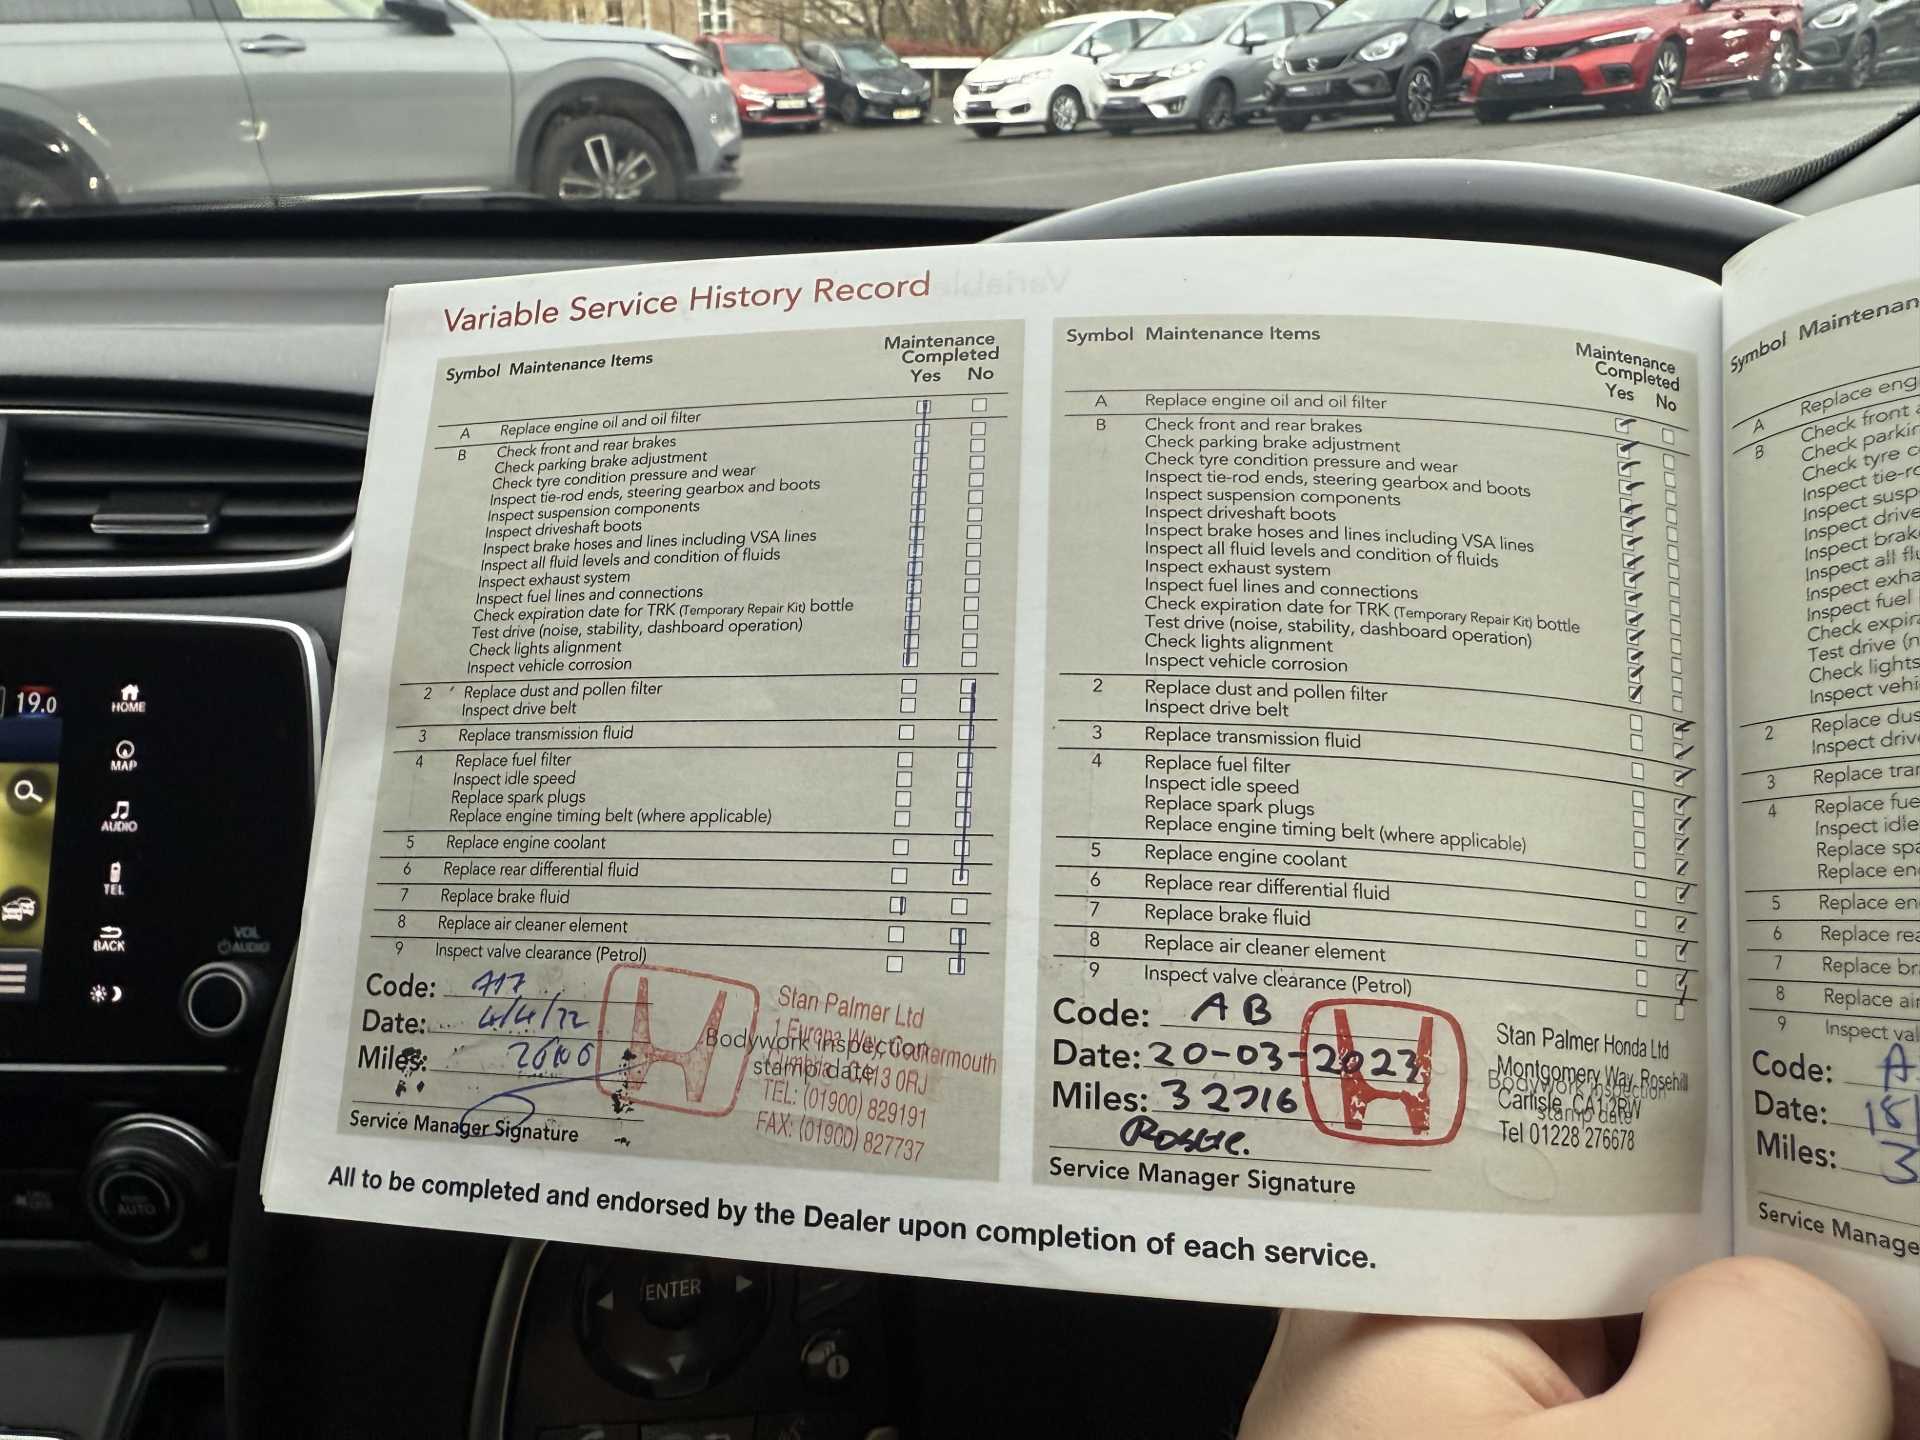 Variable Service History Record
Symbol Maintenance Items
Maintenance
Completed
Yes No
A Replace engine oil and oil filter
B Check front and rear brakes
Check parking brake adjustment
Check tyre condition pressure and wear
Inspect tie-rod ends, steering gearbox and boots
Inspect suspension components
Inspect driveshaft boots
Inspect brake hoses and lines including VSA lines
Inspect all fluid levels and condition of fluids
Inspect exhaust system
Inspect fuel lines and connections
Check expiration date for TRK (Temporary Repair Kit) bottle
Test drive (noise, stability, dashboard operation)
Check lights alignment
Inspect vehicle corrosion
2 Replace dust and pollen filter
Inspect drive belt
3 Replace transmission fluid
4 Replace fuel filter
Inspect idle speed
Replace spark plugs
Replace engine timing belt (where applicable)
5 Replace engine coolant
6 Replace rear differential fluid
7 Replace brake fluid
8 Replace air cleaner element
9 Inspect valve clearance (Petrol)
Code:
Date: 4/4/22
Miles:
Service Manager Signature
Bodywork inspection
stamp date
Stan Palmer Ltd
1 Europa Way, Cockermouth
Cumbria CA13 0RJ
TEL: (01900) 829191
FAX: (01900) 827737
Symbol Maintenance Items
Maintenance
Completed
Yes No
A Replace engine oil and oil filter
B Check front and rear brakes
Check parking brake adjustment
Check tyre condition pressure and wear
Inspect tie-rod ends, steering gearbox and boots
Inspect suspension components
Inspect driveshaft boots
Inspect brake hoses and lines including VSA lines
Inspect all fluid levels and condition of fluids
Inspect exhaust system
Inspect fuel lines and connections
Check expiration date for TRK (Temporary Repair Kit) bottle
Test drive (noise, stability, dashboard operation)
Check lights alignment
Inspect vehicle corrosion
2 Replace dust and pollen filter
Inspect drive belt
3 Replace transmission fluid
4 Replace fuel filter
Inspect idle speed
Replace spark plugs
Replace engine timing belt (where applicable)
5 Replace engine coolant
6 Replace rear differential fluid
7 Replace brake fluid
8 Replace air cleaner element
9 Inspect valve clearance (Petrol)
Code: AB
Date: 20-03-2023
Miles: 32716
Service Manager Signature
Stan Palmer Honda Ltd
Montgomery Way, Rosehill
Carlisle, CA1 2RW
Tel 01228 276678
Bodywork inspection
stamp date
All to be completed and endorsed by the Dealer upon completion of each service.
Symbol Maintenan
A Replace eng
B Check front
Check parkin
Check tyre c
Inspect tie-ro
Inspect susp
Inspect drive
Inspect brak
Inspect all flu
Inspect exha
Inspect fuel
Check expira
Test drive (n
Check lights
Inspect vehi
2 Replace dus
Inspect driv
3 Replace trar
4 Replace fue
Inspect idle
Replace spa
Replace en
5 Replace en
6 Replace rea
7 Replace br
8 Replace air
9 Inspect val
Code: A
Date: 18/
Miles: 3
Service Manage
19.0
HOME
MAP
AUDIO
TEL
BACK
VOL
AUDIO
AUTO
ENTER